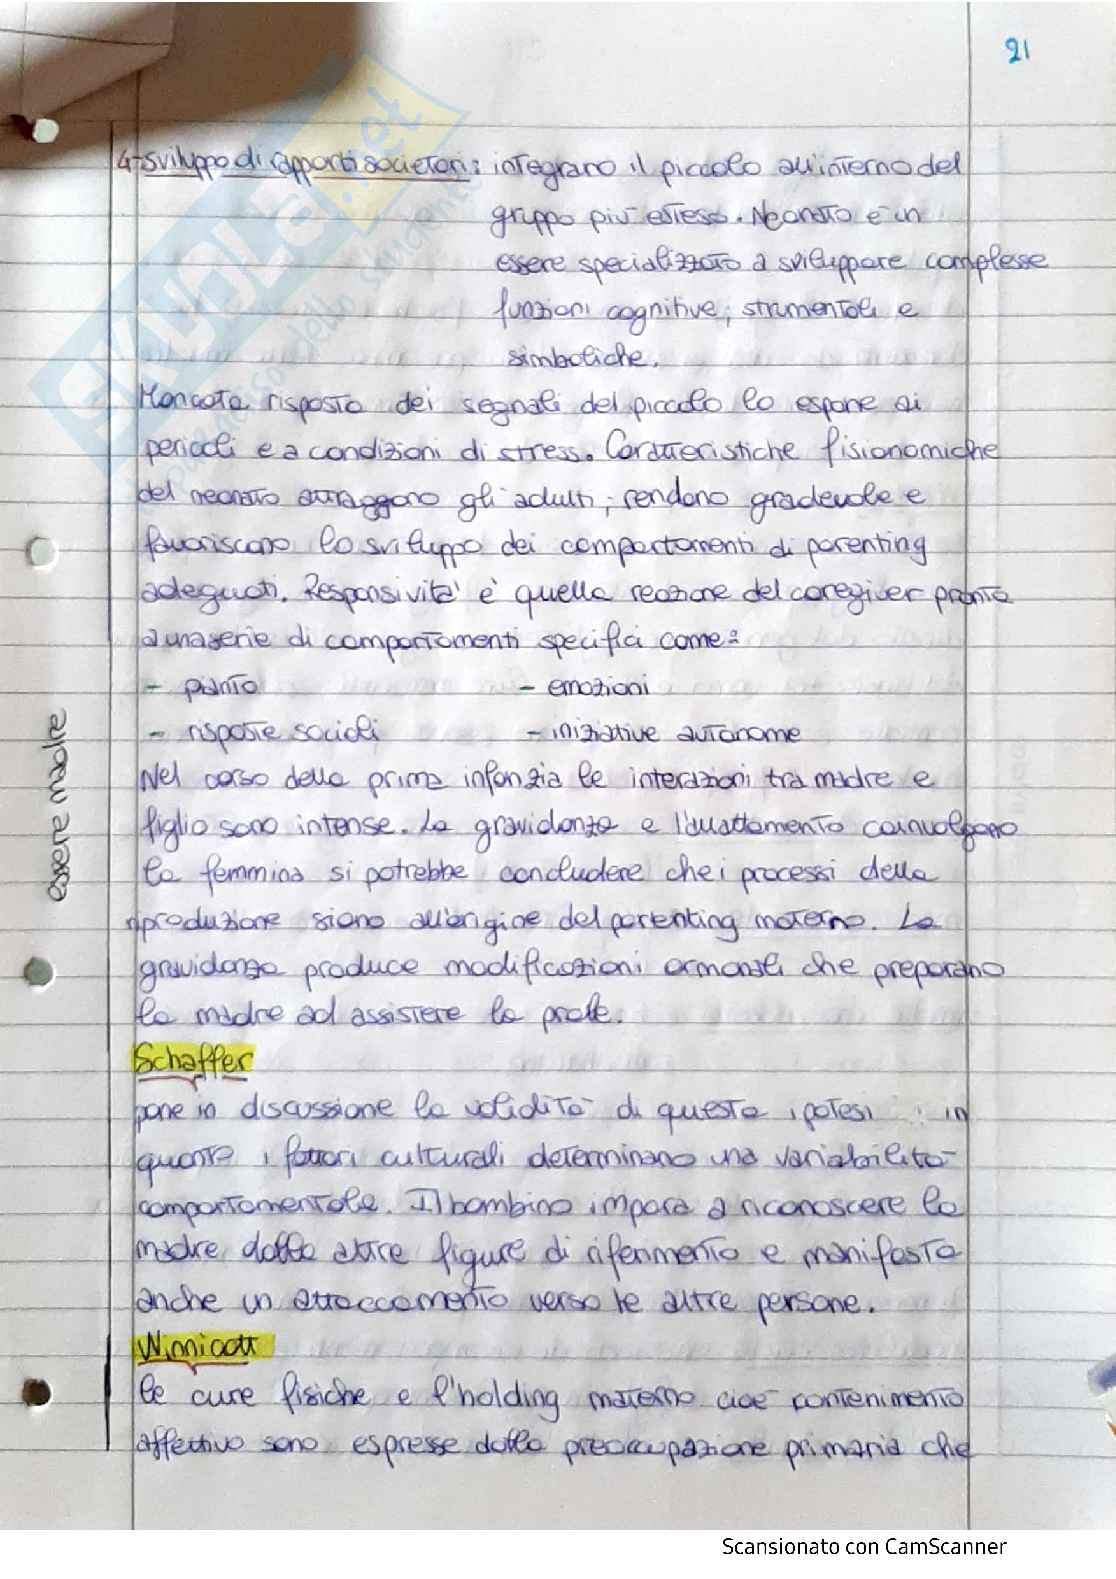 21
4-sviluppo di rapporti societari: integrano il piccolo all'interno del
gruppo più esteso. Neonato è un
essere specializzato a sviluppare complesse
funzioni cognitive, strumentali e
simboliche.
Mancata risposta dei segnali del piccolo lo espone ai
pericoli e a condizioni di stress. Caratteristiche fisionomiche
del neonato attraggono gli adulti, rendono gradevole e
favoriscono lo sviluppo dei comportamenti di parenting
adeguati. Responsività è quella reazione del caregiver pronta
a una serie di comportamenti specifici come:
- pianto - emozioni
- risposte sociali - iniziative autonome
Nel corso della prima infanzia le interazioni tra madre e
figlio sono intense. La gravidanza e l'allattamento coinvolgono
la femmina si potrebbe concludere che i processi della
riproduzione siano all'origine del parenting materno. La
gravidanza produce modificazioni ormonali che preparano
la madre ad assistere la prole.
essere madre
Schaffer
pone in discussione la validità di questa ipotesi in
quanto i fattori culturali determinano una variabilità
comportamentale. Il bambino impara a riconoscere la
madre dalle altre figure di riferimento e manifesta
anche un attaccamento verso le altre persone.
Winnicott
le cure fisiche e l'holding materno cioè contenimento
affettivo sono espresse dalla preoccupazione primaria che
SKUOLA.net
paradiso dello studente
Scansionato con CamScanner